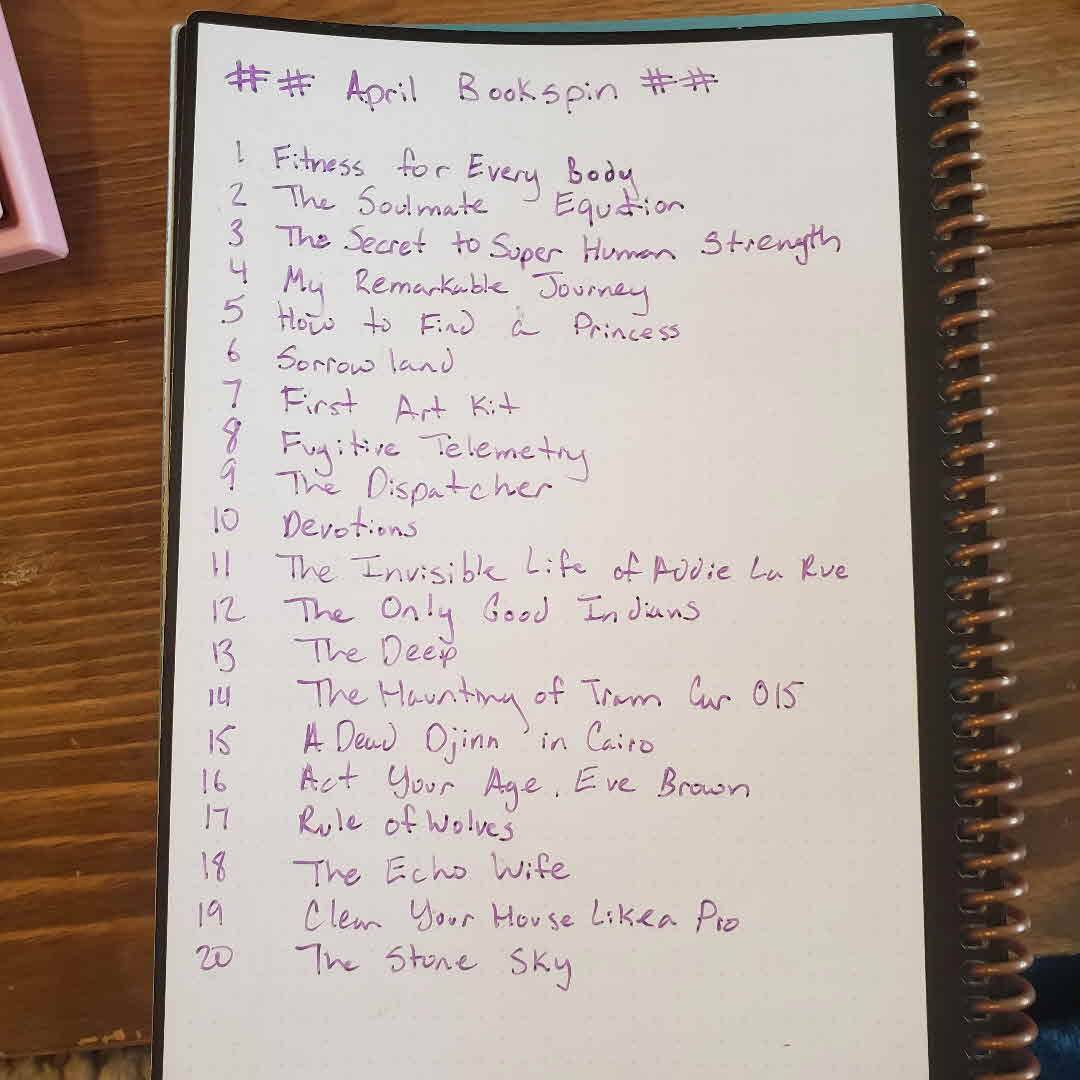 ## April Bookspin ##
1 Fitness for Every Body
2 The Soulmate Equation
3 The Secret to Super Human Strength
4 My Remarkable Journey
5 How to Find a Princess
6 Sorrowland
7 First Art Kit
8 Fugitive Telemetry
9 The Dispatcher
10 Devotions
11 The Invisible Life of Addie La Rue
12 The Only Good Indians
13 The Deep
14 The Haunting of Tram Car 015
15 A Dead Djinn in Cairo
16 Act Your Age, Eve Brown
17 Rule of Wolves
18 The Echo Wife
19 Clean Your House Like a Pro
20 The Stone Sky